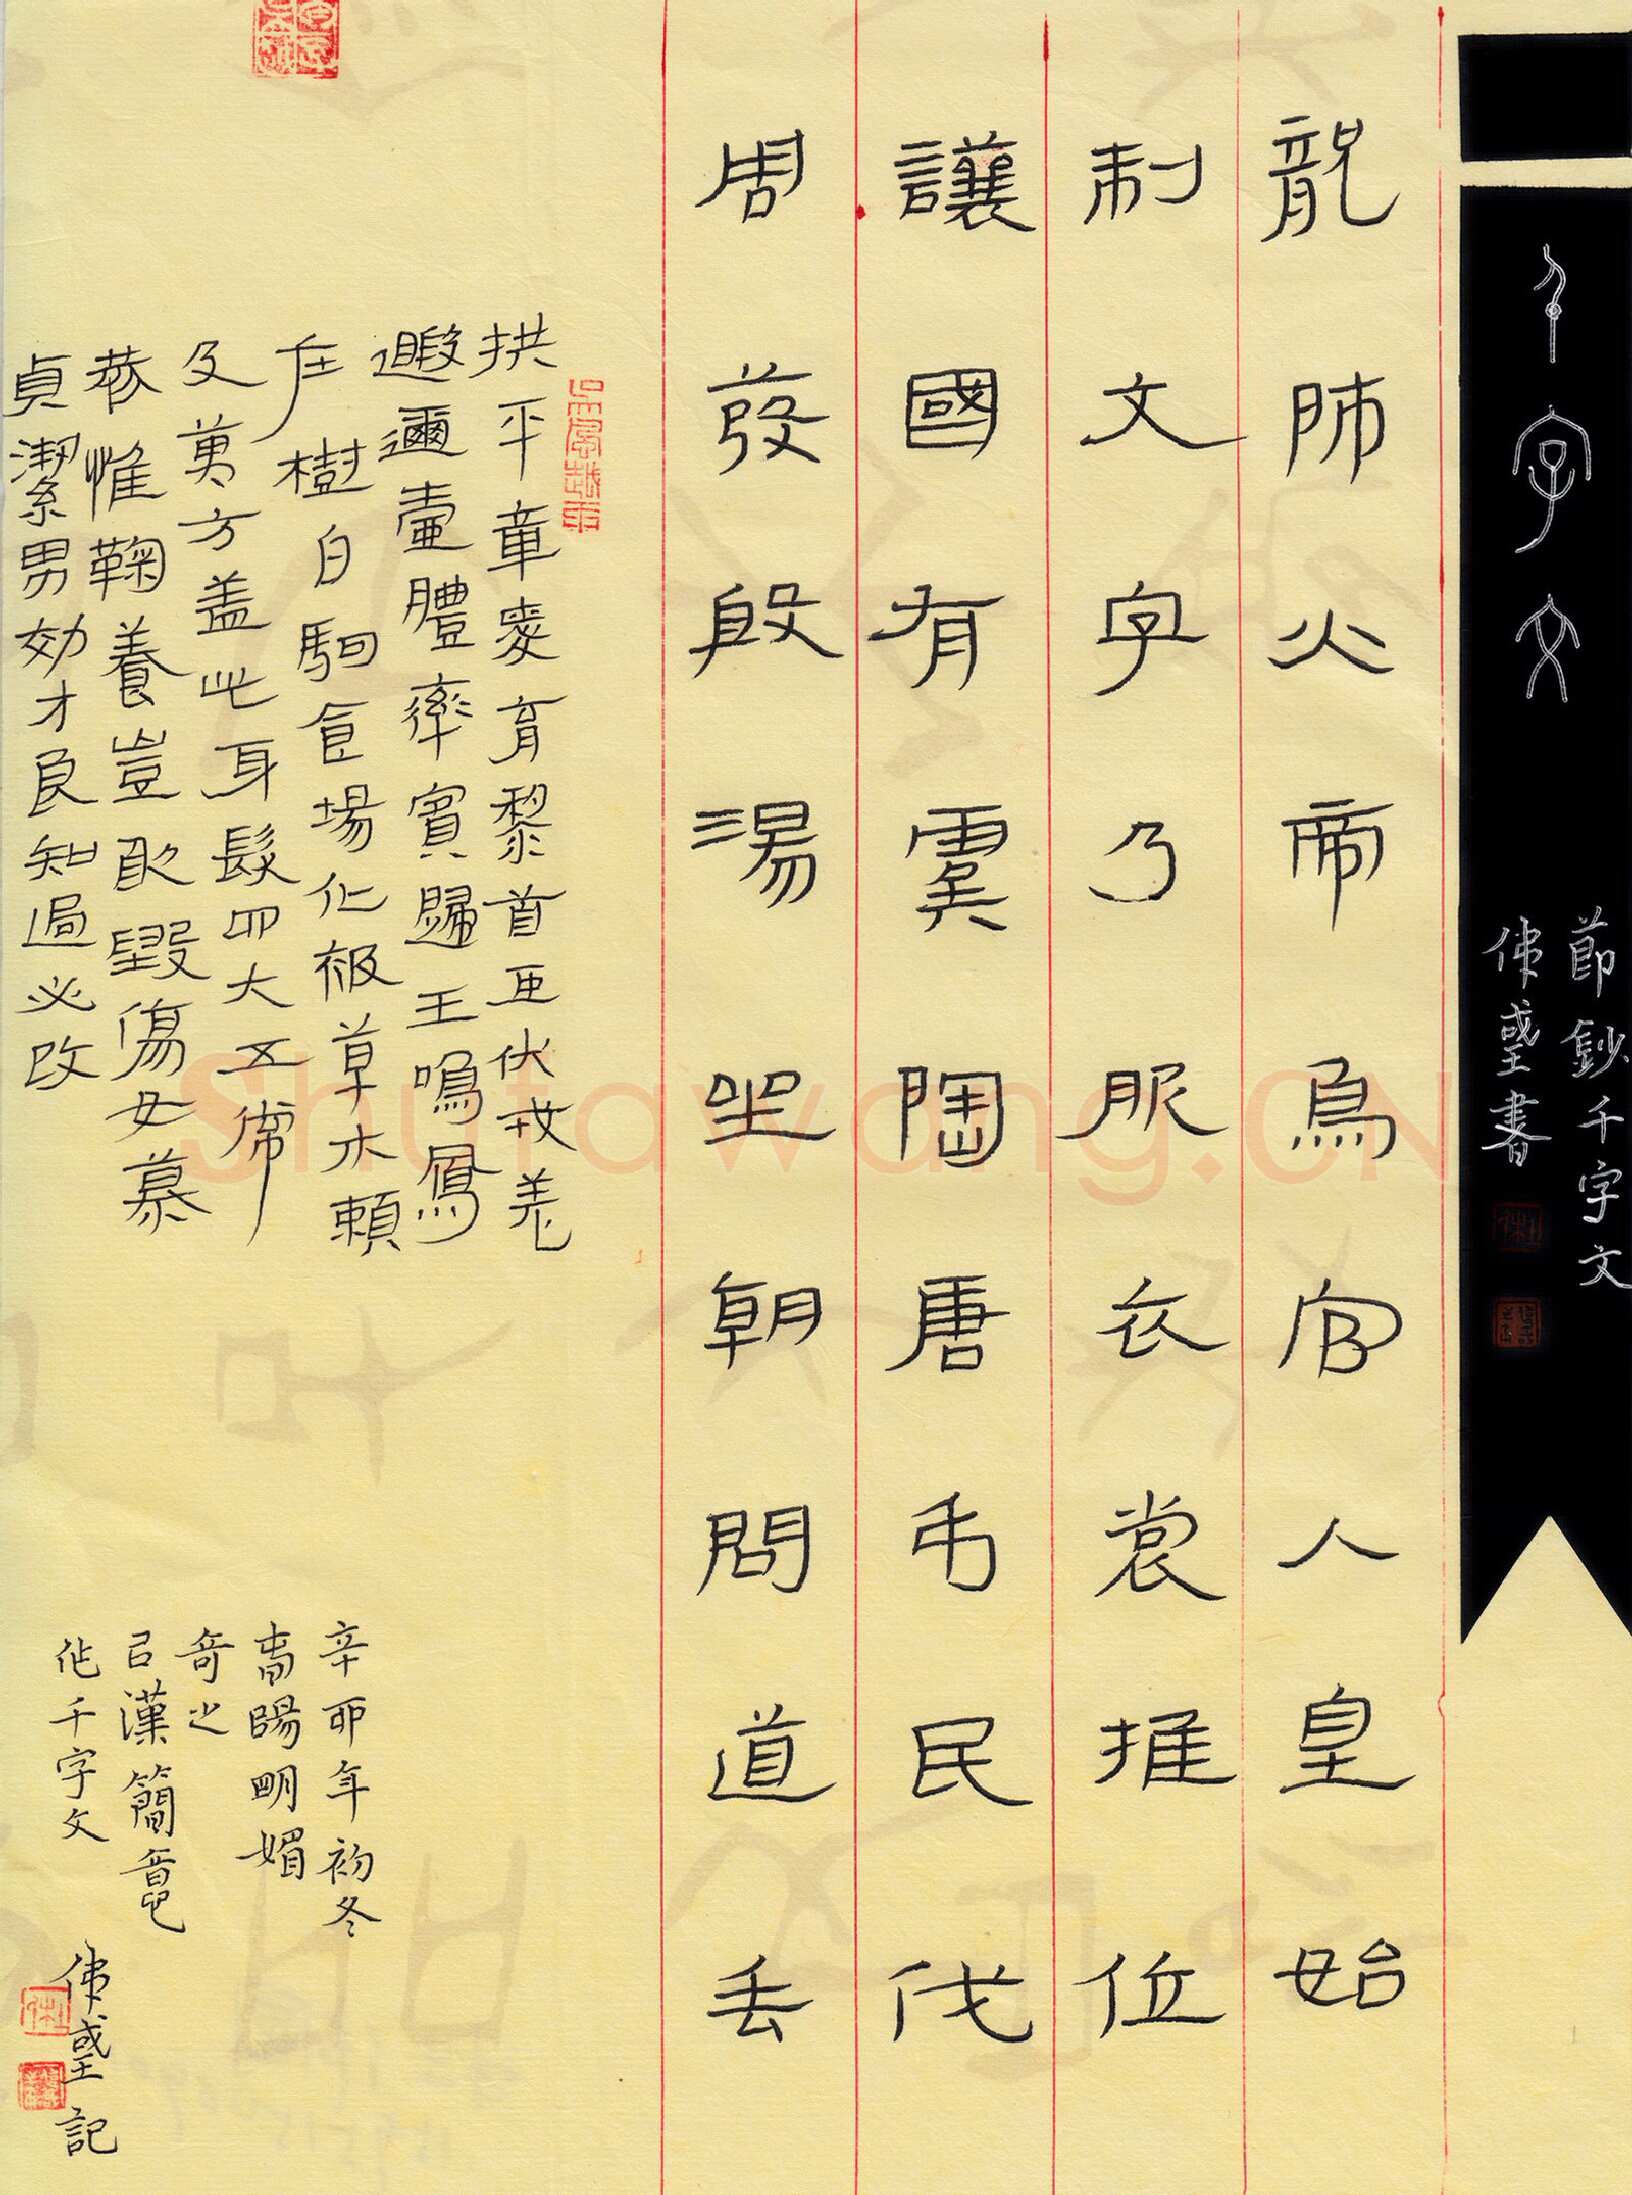 千字文
節鈔千字文
書
龍師火帝鳥官人皇始
制文字乃服衣裳推位
讓國有虞陶唐弔民伐
周發殷湯坐朝問道垂
拱平章愛育黎首臣伏戎羌
遐邇壹體率賓歸王鳴鳳
在樹白駒食場化被草木賴
及萬方蓋此身髮四大五常
恭惟鞠養豈敢毀傷女慕
貞潔男効才良知過必改
辛卯年初冬
春陽明媚
奇之
㠯漢簡意
作千字文
記
Shufawang.CN